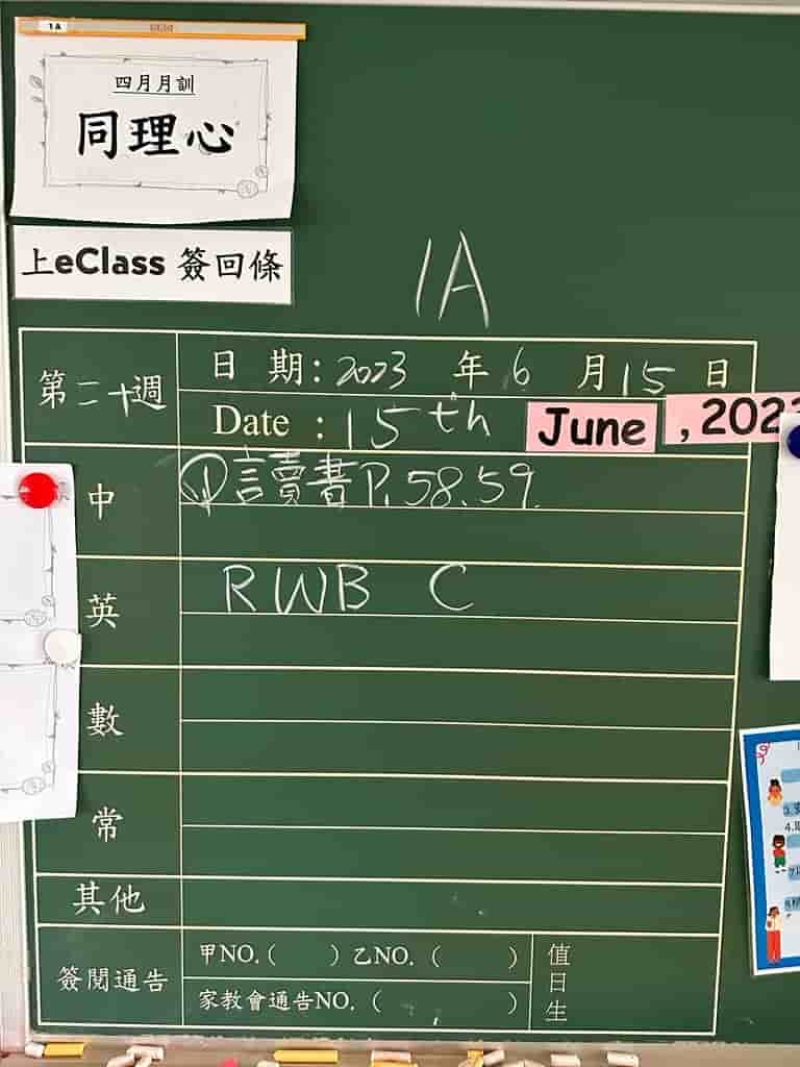 1A
四月月訓
同理心
上eClass 簽回條
1A
第二十週
日 期：2023 年 6 月 15 日
Date : 15th June , 202
中
讀書P.58.59.
英
RWB C
數
常
其他
簽閱通告
甲NO.( ) 乙NO. ( )
家教會通告NO. ( )
值日生